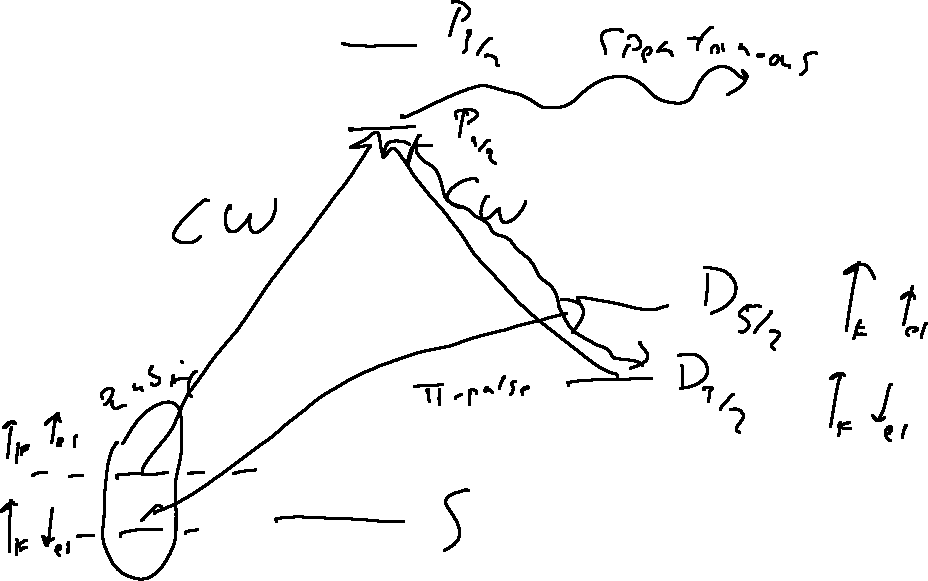 P₃/₂
spontan-ous
P₁/₂
CW
CW
D₅/₂ ↑ₖ ↑ₑₗ
π-pulse
D₃/₂ ↑ₖ ↓ₑₗ
↑ₖ ↑ₑₗ
↑ₖ ↓ₑₗ
S